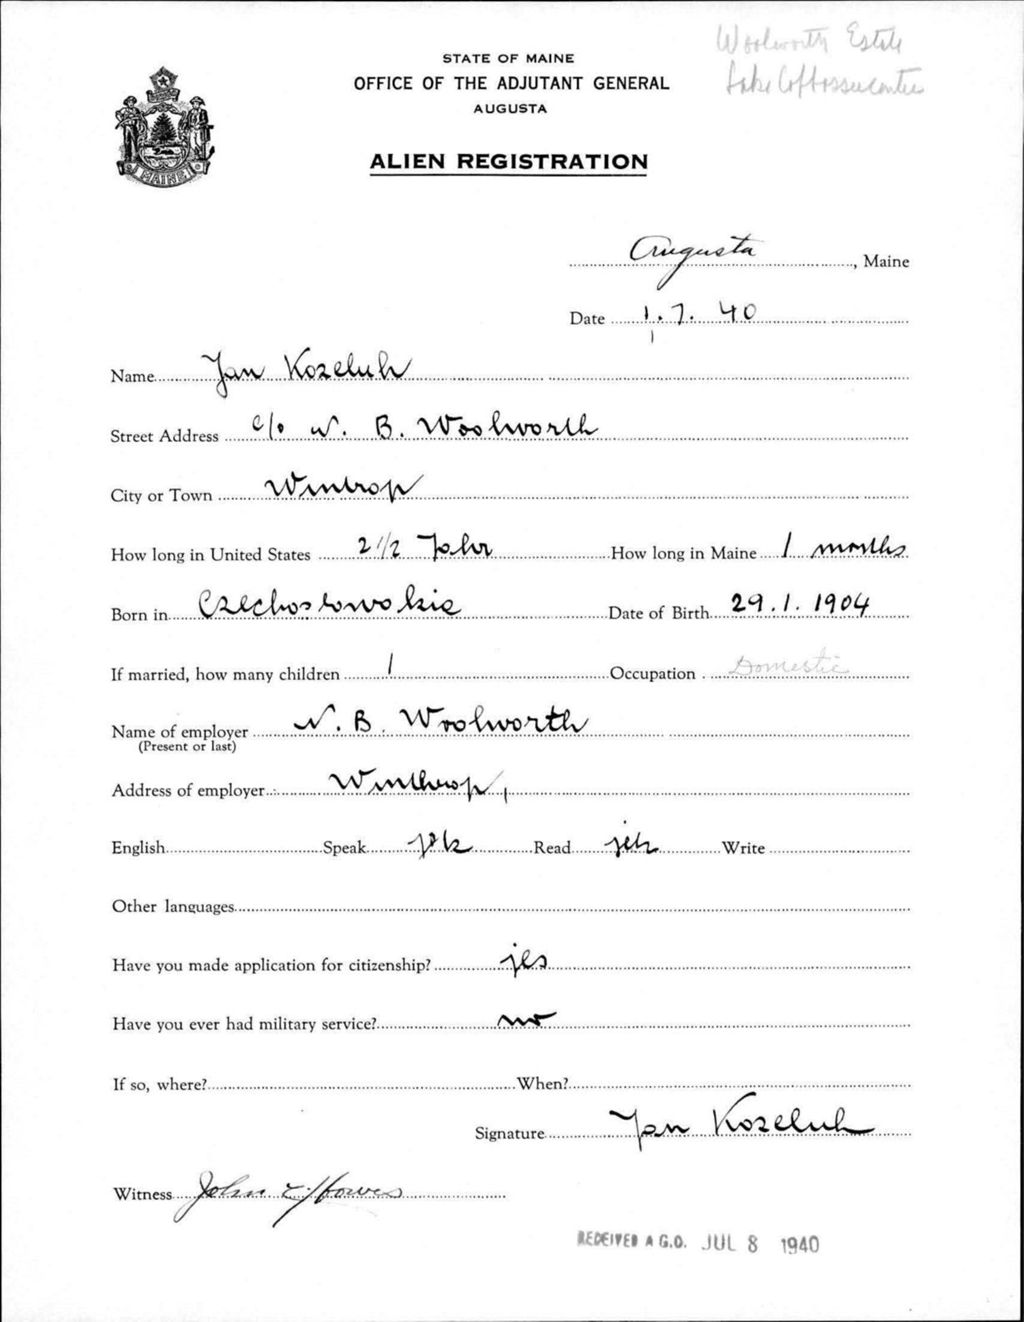 Woolworth Estate
Lake Cobbossecontee
STATE OF MAINE
OFFICE OF THE ADJUTANT GENERAL
AUGUSTA
ALIEN REGISTRATION
MAINE
Augusta, Maine
Date 1.7. 40
Name Jan Kozeluh
Street Address c/o N. B. Woolworth
City or Town Wintrop
How long in United States 2 1/2 Jahr How long in Maine 1 months
Born in Czechoslowakie Date of Birth 29.1.1904
If married, how many children 1 Occupation Domestic
Name of employer N. B. Woolworth
(Present or last)
Address of employer Winthrop,
English Speak Read Write
Other languages
Have you made application for citizenship? jes
Have you ever had military service? no
If so, where? When?
Signature Jan Kozeluh
Witness John E Howes
RECEIVED A.G.O. JUL 8 1940